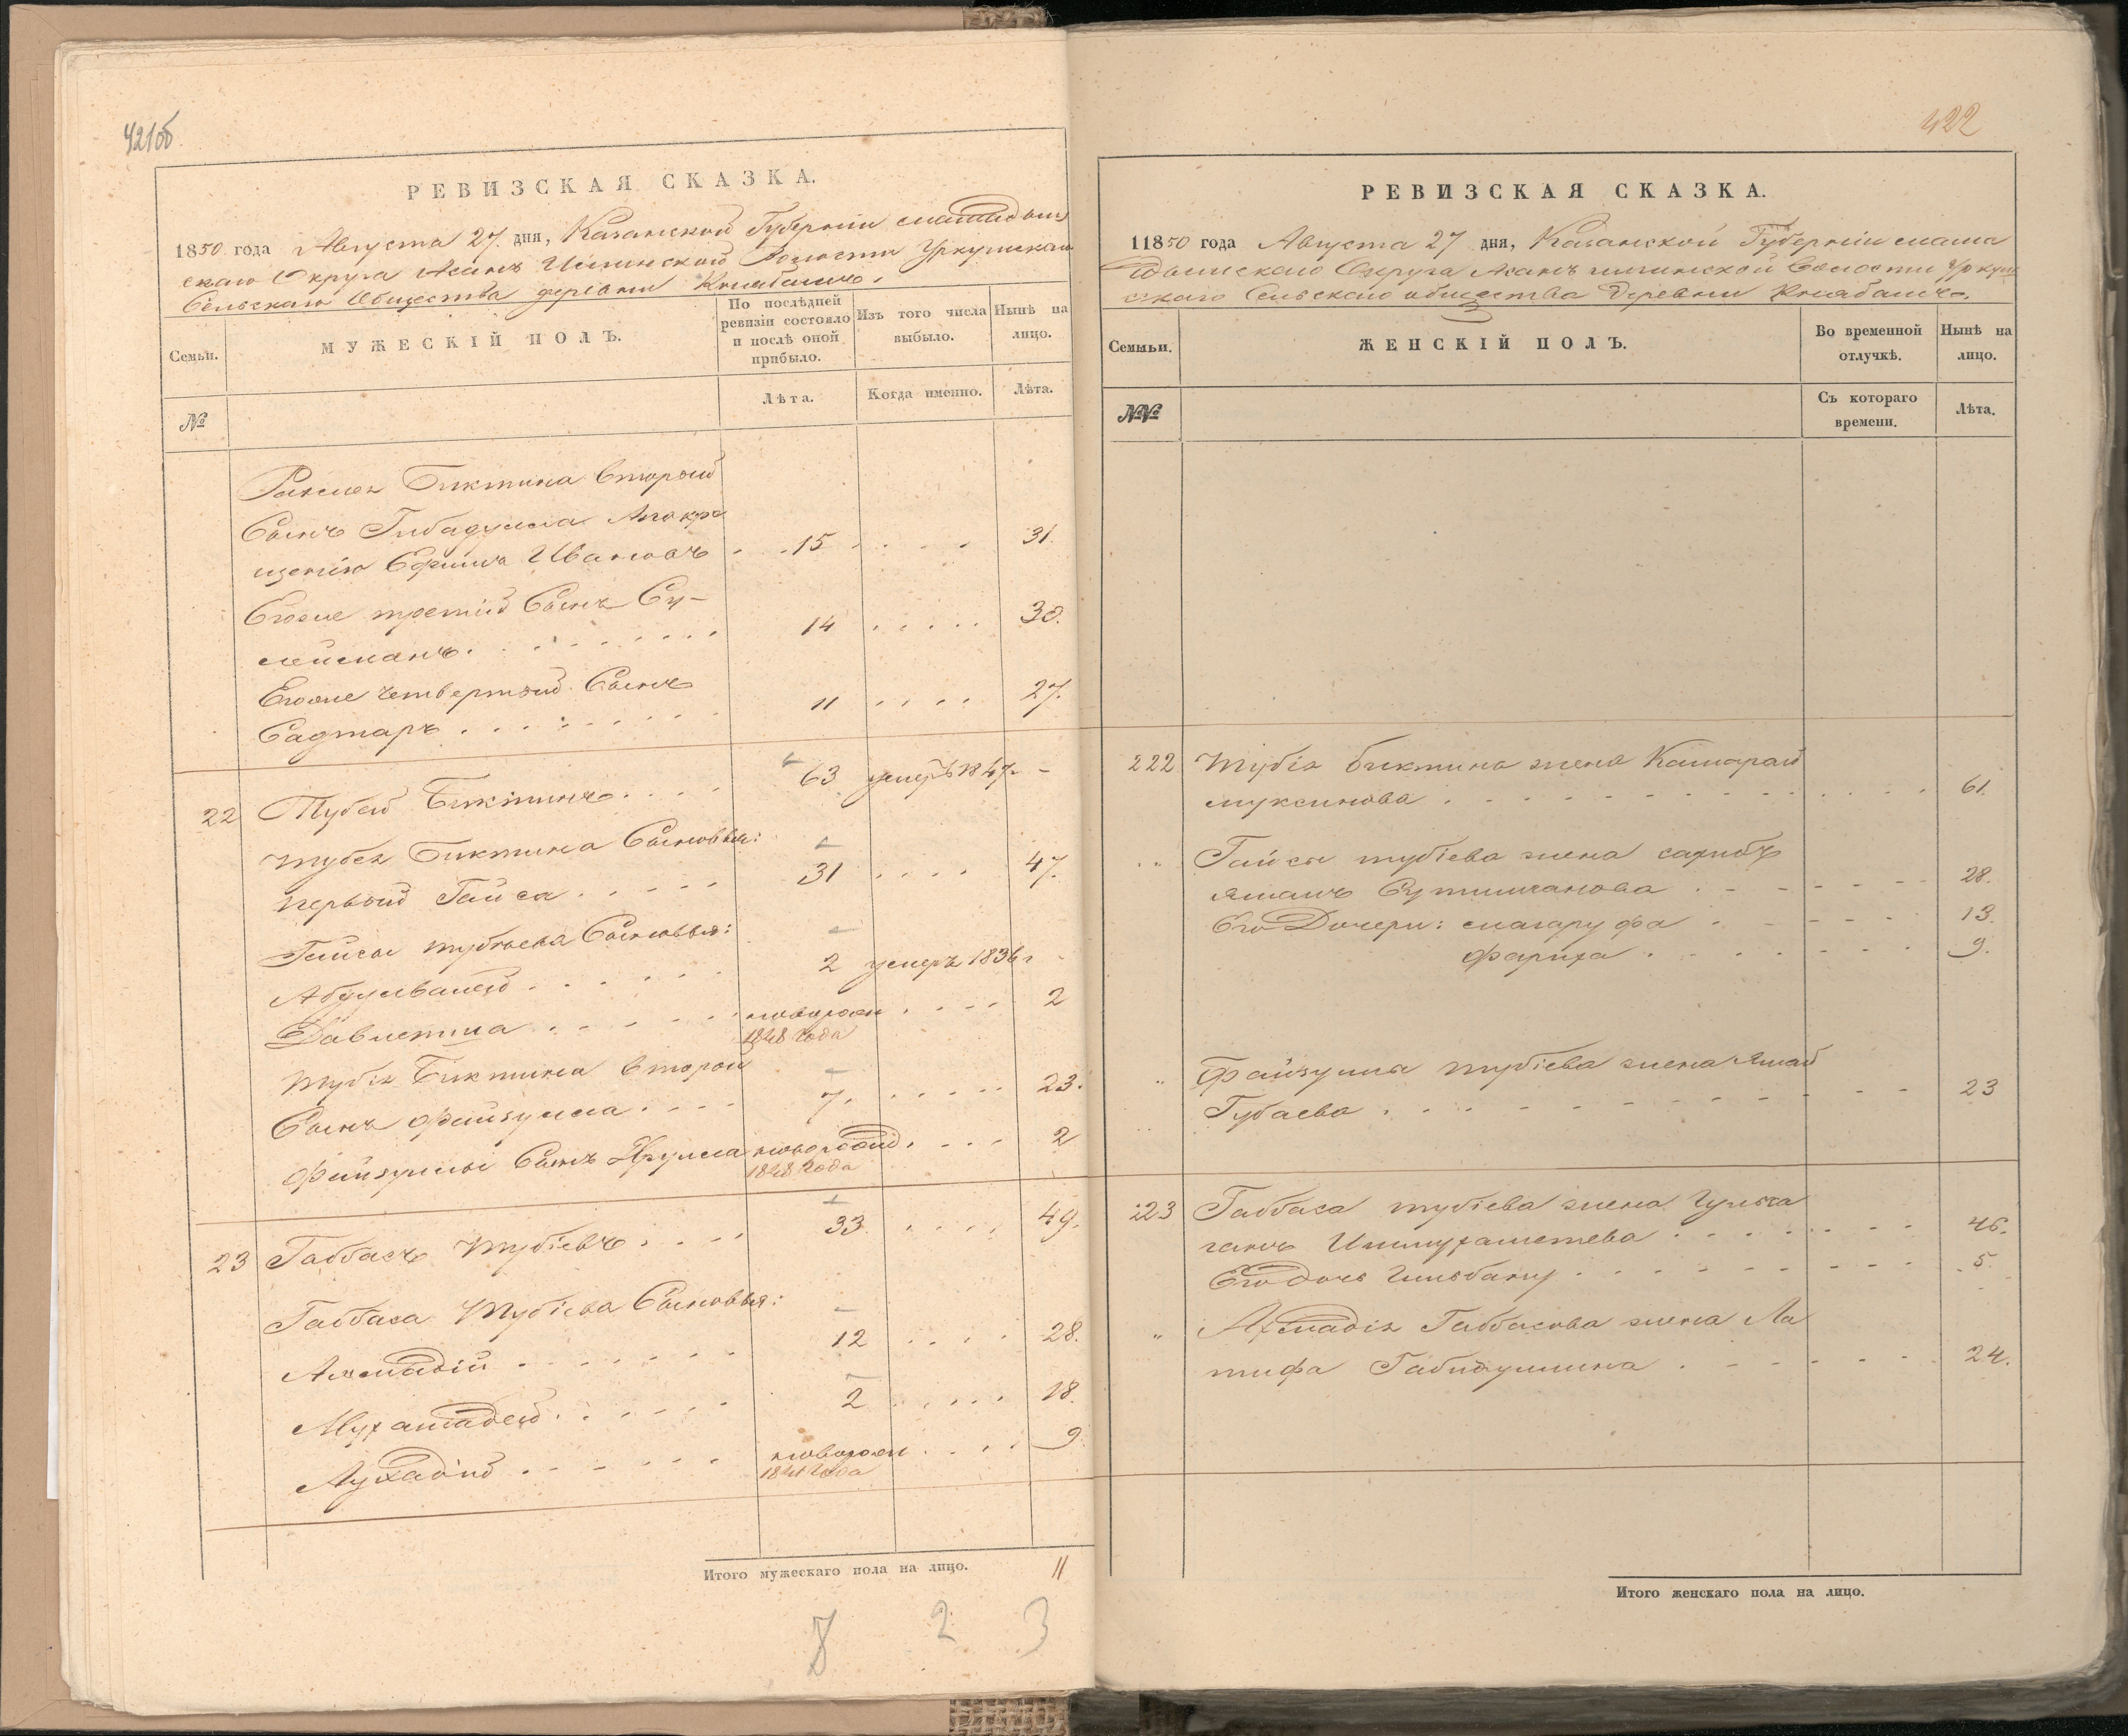 421об
РЕВИЗСКАЯ СКАЗКА.
1850 года Августа 27 дня, Казанской Губерніи мамадыш
скаго Округа Асанъ Илгинской Волости Уркушскаго
Сельскаго Общества деревни Княбашъ.
Семьи.
МУЖЕСКІЙ ПОЛЪ.
По послѣдней
ревизіи состояло
и послѣ оной
прибыло.
Изъ того числа
выбыло.
Нынѣ на
лицо.
№
Лѣта.
Когда именно.
Лѣта.
Биктина второй
Сынъ Гибадулла
щенію Ефимъ Ивановъ 15 31.
Егоже третій Сынъ Су-
лейманъ. 14 30.
Егоже четвертый Сынъ
Садтаръ 11 27.
22 Тубей Биктинъ. 63 умеръ 1847 -
Тубея Биктина Сыновья:
первый Гайса 31 47.
Гайсы тубіева Сыновья:
2 умеръ 1836 г -
Давлетша новорожд 2
1848 года
Тубея Биктина второй
Сынъ Файзулла 7. 23.
Файзуллы Сынъ новорожд 2
1848 года
23 Габбасъ Тубіевъ 33 49.
Габбаса Тубіева Сыновья:
Ахмадій 12 28.
Мухамадей 2 18.
новорож 9
1841 года
Итого мужескаго пола на лицо. 11
8 2 3
422
РЕВИЗСКАЯ СКАЗКА.
11850 года Августа 27 дня, Казанской Губерніи мама
дышскаго Округа Асанъ илгинской Волости Уркуш
скаго Сельскаго общества Деревни Княбашъ.
Семыьи.
ЖЕНСКІЙ ПОЛЪ.
Во временной
отлучкѣ.
Нынѣ на
лицо.
№№
Съ котораго
времени.
Лѣта.
222 Тубія биктина жена
муксинова 61.
Гайсы тубіева жена сахибъ
ямалъ 28.
Его Дочери: магаруфа 13.
фариха 9.
Файзуллы тубіева жена
Губаева 23
223 Габбаса тубіева жена Гульжа
ганъ Ишмухаметева 46.
Его дочь Гильбану 5.
Ахмадія Габбасова жена Ла
тифа Габидуллина 24.
Итого женскаго пола на лицо.